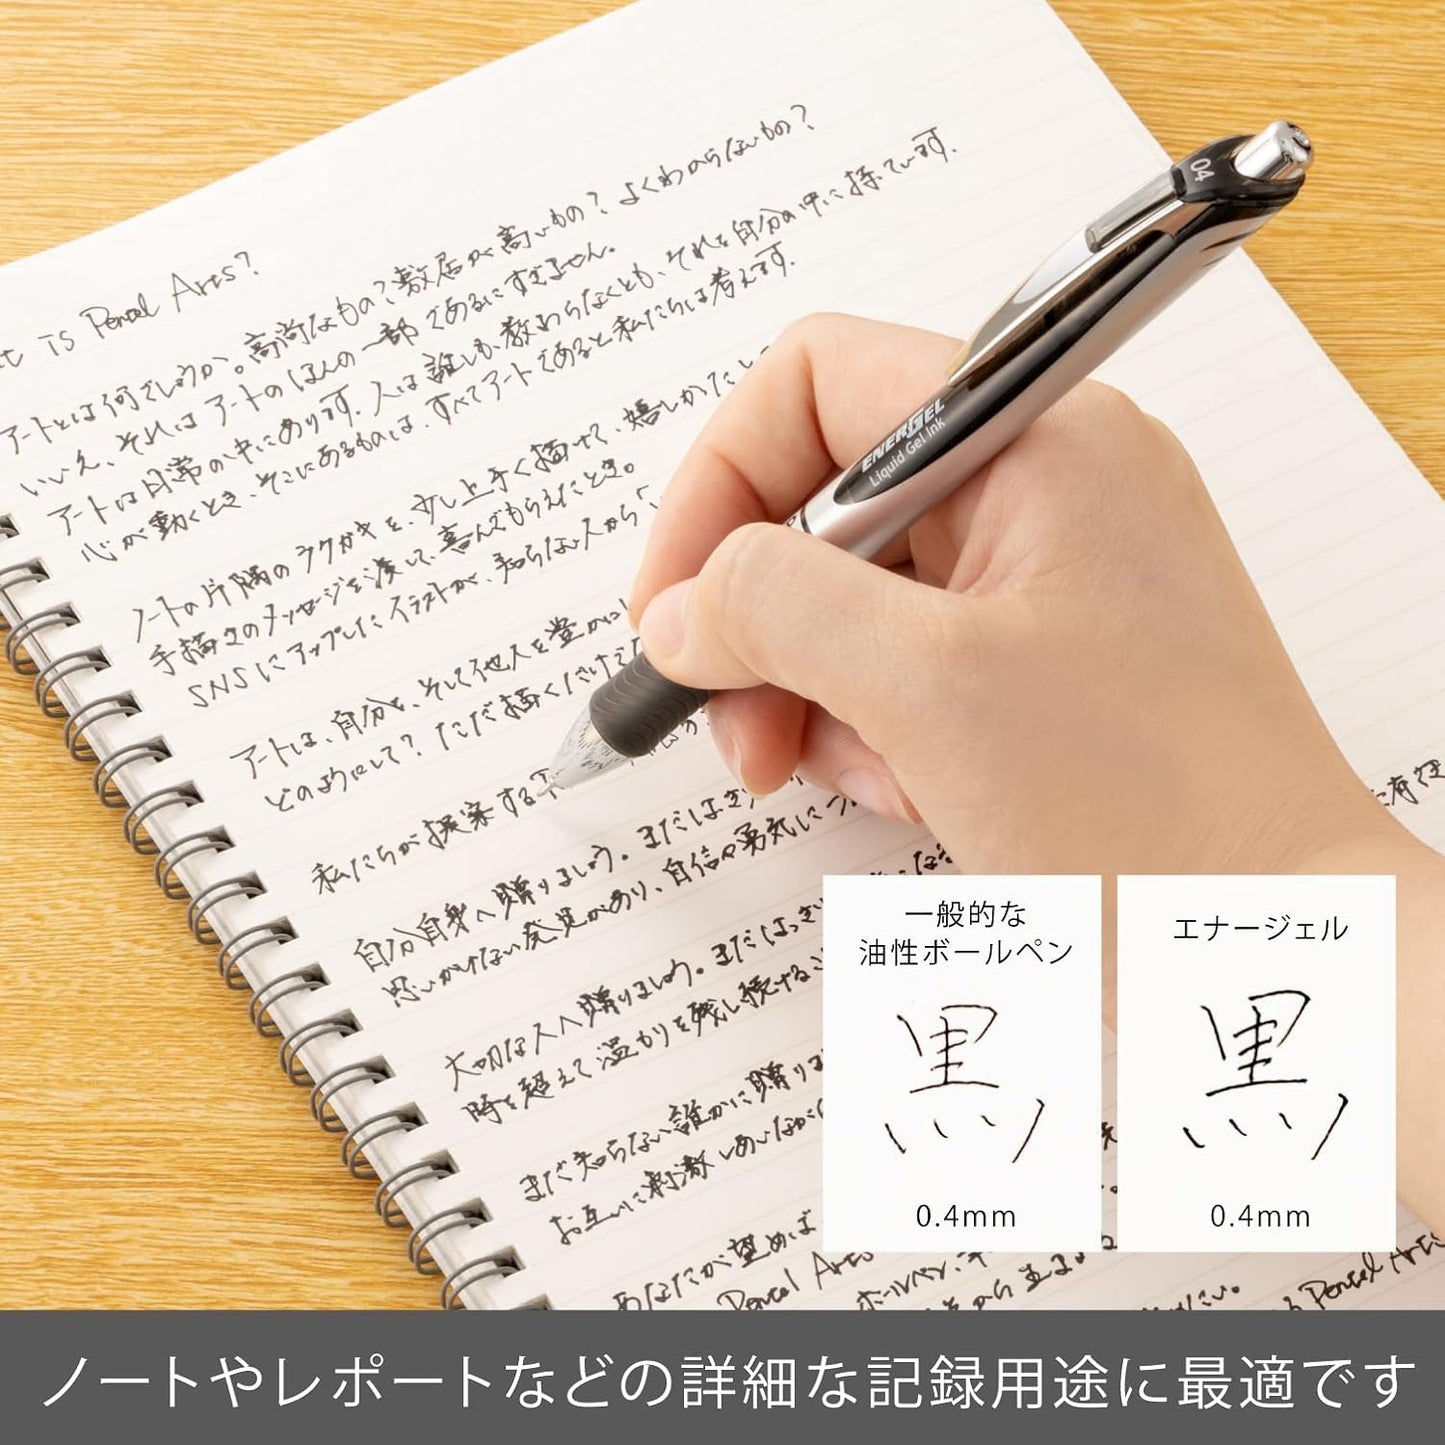 What Is Pentel Arts?
アートとは何でしょうか。高尚なもの?敷居が高いもの?よくわからないもの?
いいえ、それはアートのほんの一部であるにすぎません。
アートは日常の中にあります。人は誰しも、教わらなくとも、それを自分の中に持っています。
心が動くとき、そこにあるものは、すべてアートであると私たちは考えます。
ノートの片隅のラクガキを、少し上手く描けて、嬉しかった
手描きのメッセージを渡して、喜んでもらえたとき。
SNSにアップしたイラストが、知らない人から「
アートは、自分を、そして他人を豊かに
どのようにして?ただ描くだけ
私たちが提案する
自分自身へ贈りましょう。まだはっきり
思いがけない発見があり、自信や勇気に
大切な人へ贈りましょう。まだはっきり
時を超えて温かりを残し続ける
まだ知らない誰かに贈りま
お互いに刺激しあいながら
あなたが望めば
Pentel Arts
ボールペン、
から生まれ
Pentel Arts
04
ENERGEL
Liquid Gel Ink
一般的な
油性ボールペン
黒
0.4mm
エナージェル
黒
0.4mm
ノートやレポートなどの詳細な記録用途に最適です